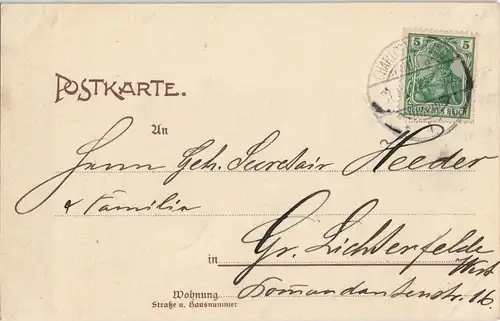 5
DEUTSCHES REICH
POSTKARTE.
An
Herrn Geh. Secretair Heeder
& Familie
in Gr. Lichterfelde
West
Wohnung Kommandantenstr. 16
Straße u. Hausnummer